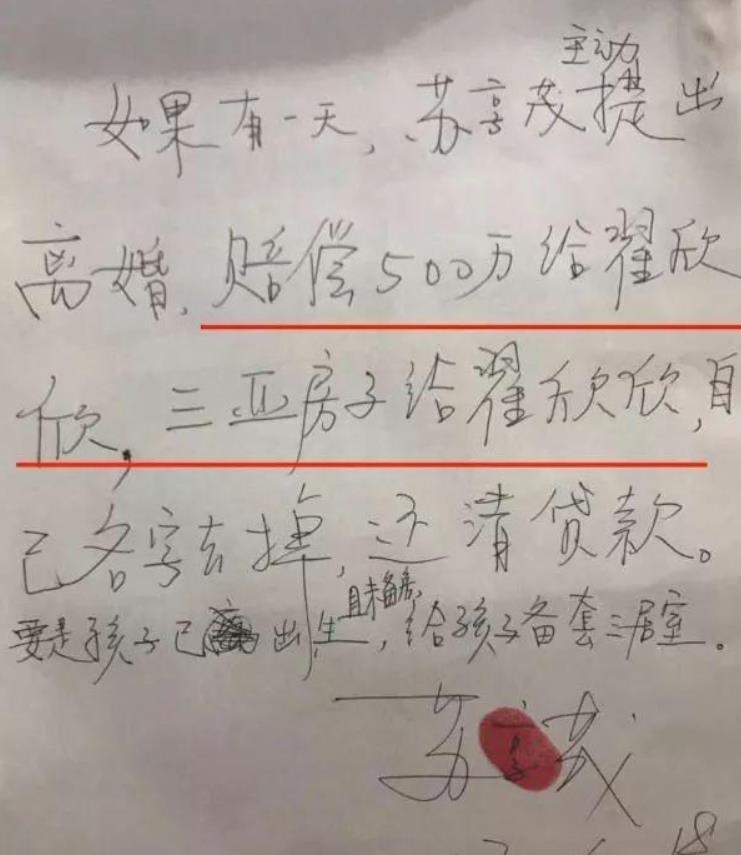 如果有一天,苏享茂主动提出
离婚,赔偿500万给翟欣
欣,三亚房子给翟欣欣,自
己名字去掉,还清贷款。
要是孩子已出生,且未备房,给孩子备套三居室。
苏享茂
18